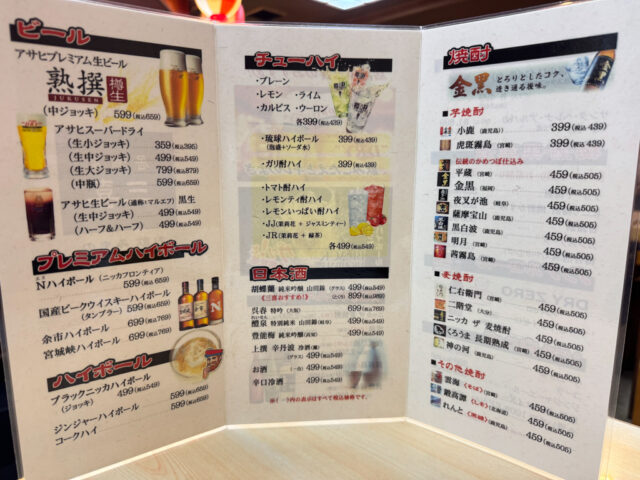 ビール
アサヒプレミアム生ビール
熟撰
JUKUSEN
樽生
(中ジョッキ) 599(税込659)
アサヒスーパードライ
(生小ジョッキ) 359(税込395)
(生中ジョッキ) 499(税込549)
(生大ジョッキ) 799(税込879)
(中瓶) 599(税込659)
アサヒ生ビール(通称:マルエフ) 黒生
(生中ジョッキ) 499(税込549)
(ハーフ&ハーフ) 499(税込549)
プレミアムハイボール
Nハイボール(ニッカフロンティア)
599(税込659)
国産ピークウイスキーハイボール
(タンブラー) 599(税込659)
余市ハイボール 699(税込769)
宮城峡ハイボール 699(税込769)
ハイボール
ブラックニッカハイボール
(ジョッキ) 499(税込549)
ジンジャーハイボール 599(税込659)
コークハイ 599(税込659)
チューハイ
・プレーン
・レモン ・ライム
・カルピス・ウーロン
各399(税込439)
・琉球ハイボール 399(税込439)
(泡盛+ソーダ水)
・ガリ酎ハイ 399(税込439)
・トマト酎ハイ
・レモンティ酎ハイ
・レモンいっぱい酎ハイ
・JJ(茉莉花 + ジャスミンティー)
・JR(茉莉花 + 緑茶)
各499(税込549)
日本酒
胡蝶蘭 純米吟醸 山田錦 (グラス) 499(税込549)
《三喜おすすめ!》 899(税込989)
呉春 特吟(大阪) 699(税込769)
醴泉 特別純米 山田錦(岐阜) 499(税込549)
豊能梅 純米吟醸(高知) 499(税込549)
上撰 辛丹波 冷酒(蔵)
(グラス) 499(税込549)
お酒 (一合) 499(税込549)
辛口冷酒 499(税込549)
※( )内の表示はすべて税込価格です。
焼酎
金黒
とろりとしたコク、
透き通る後味。
■芋焼酎
小鹿(鹿児島) 399(税込439)
虎斑霧島(宮崎) 399(税込439)
伝統のかめつぼ仕込み
平蔵(宮崎) 459(税込505)
金黒(福岡) 459(税込505)
夜叉が池(岐阜) 459(税込505)
薩摩宝山(鹿児島) 459(税込505)
黒白波(鹿児島) 459(税込505)
明月(宮崎) 459(税込505)
茜霧島(宮崎) 459(税込505)
■麦焼酎
仁右衛門(宮崎) 459(税込505)
二階堂(大分) 459(税込505)
ニッカ ザ 麦焼酎 459(税込505)
くろうま 長期熟成(宮崎) 459(税込505)
神の河(鹿児島) 459(税込505)
■その他焼酎
雲海《そば》(宮崎) 459(税込505)
鍛高譚《しそ》(北海道) 459(税込505)
れんと《黒糖》(鹿児島) 459(税込505)